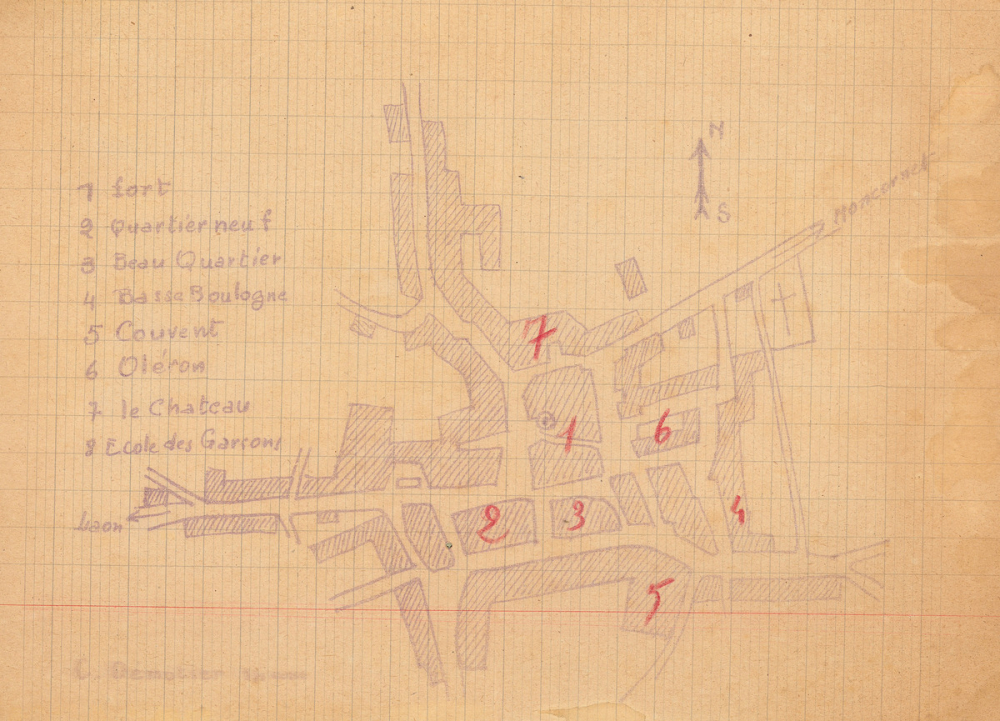 1 fort
2 Quartier neuf
3 Beau Quartier
4 Basse Boulogne
5 Couvent
6 Oléron
7 le Chateau
8 Ecole des Garçons
N
S
Moncornet
Laon
7
1
6
2
3
4
5